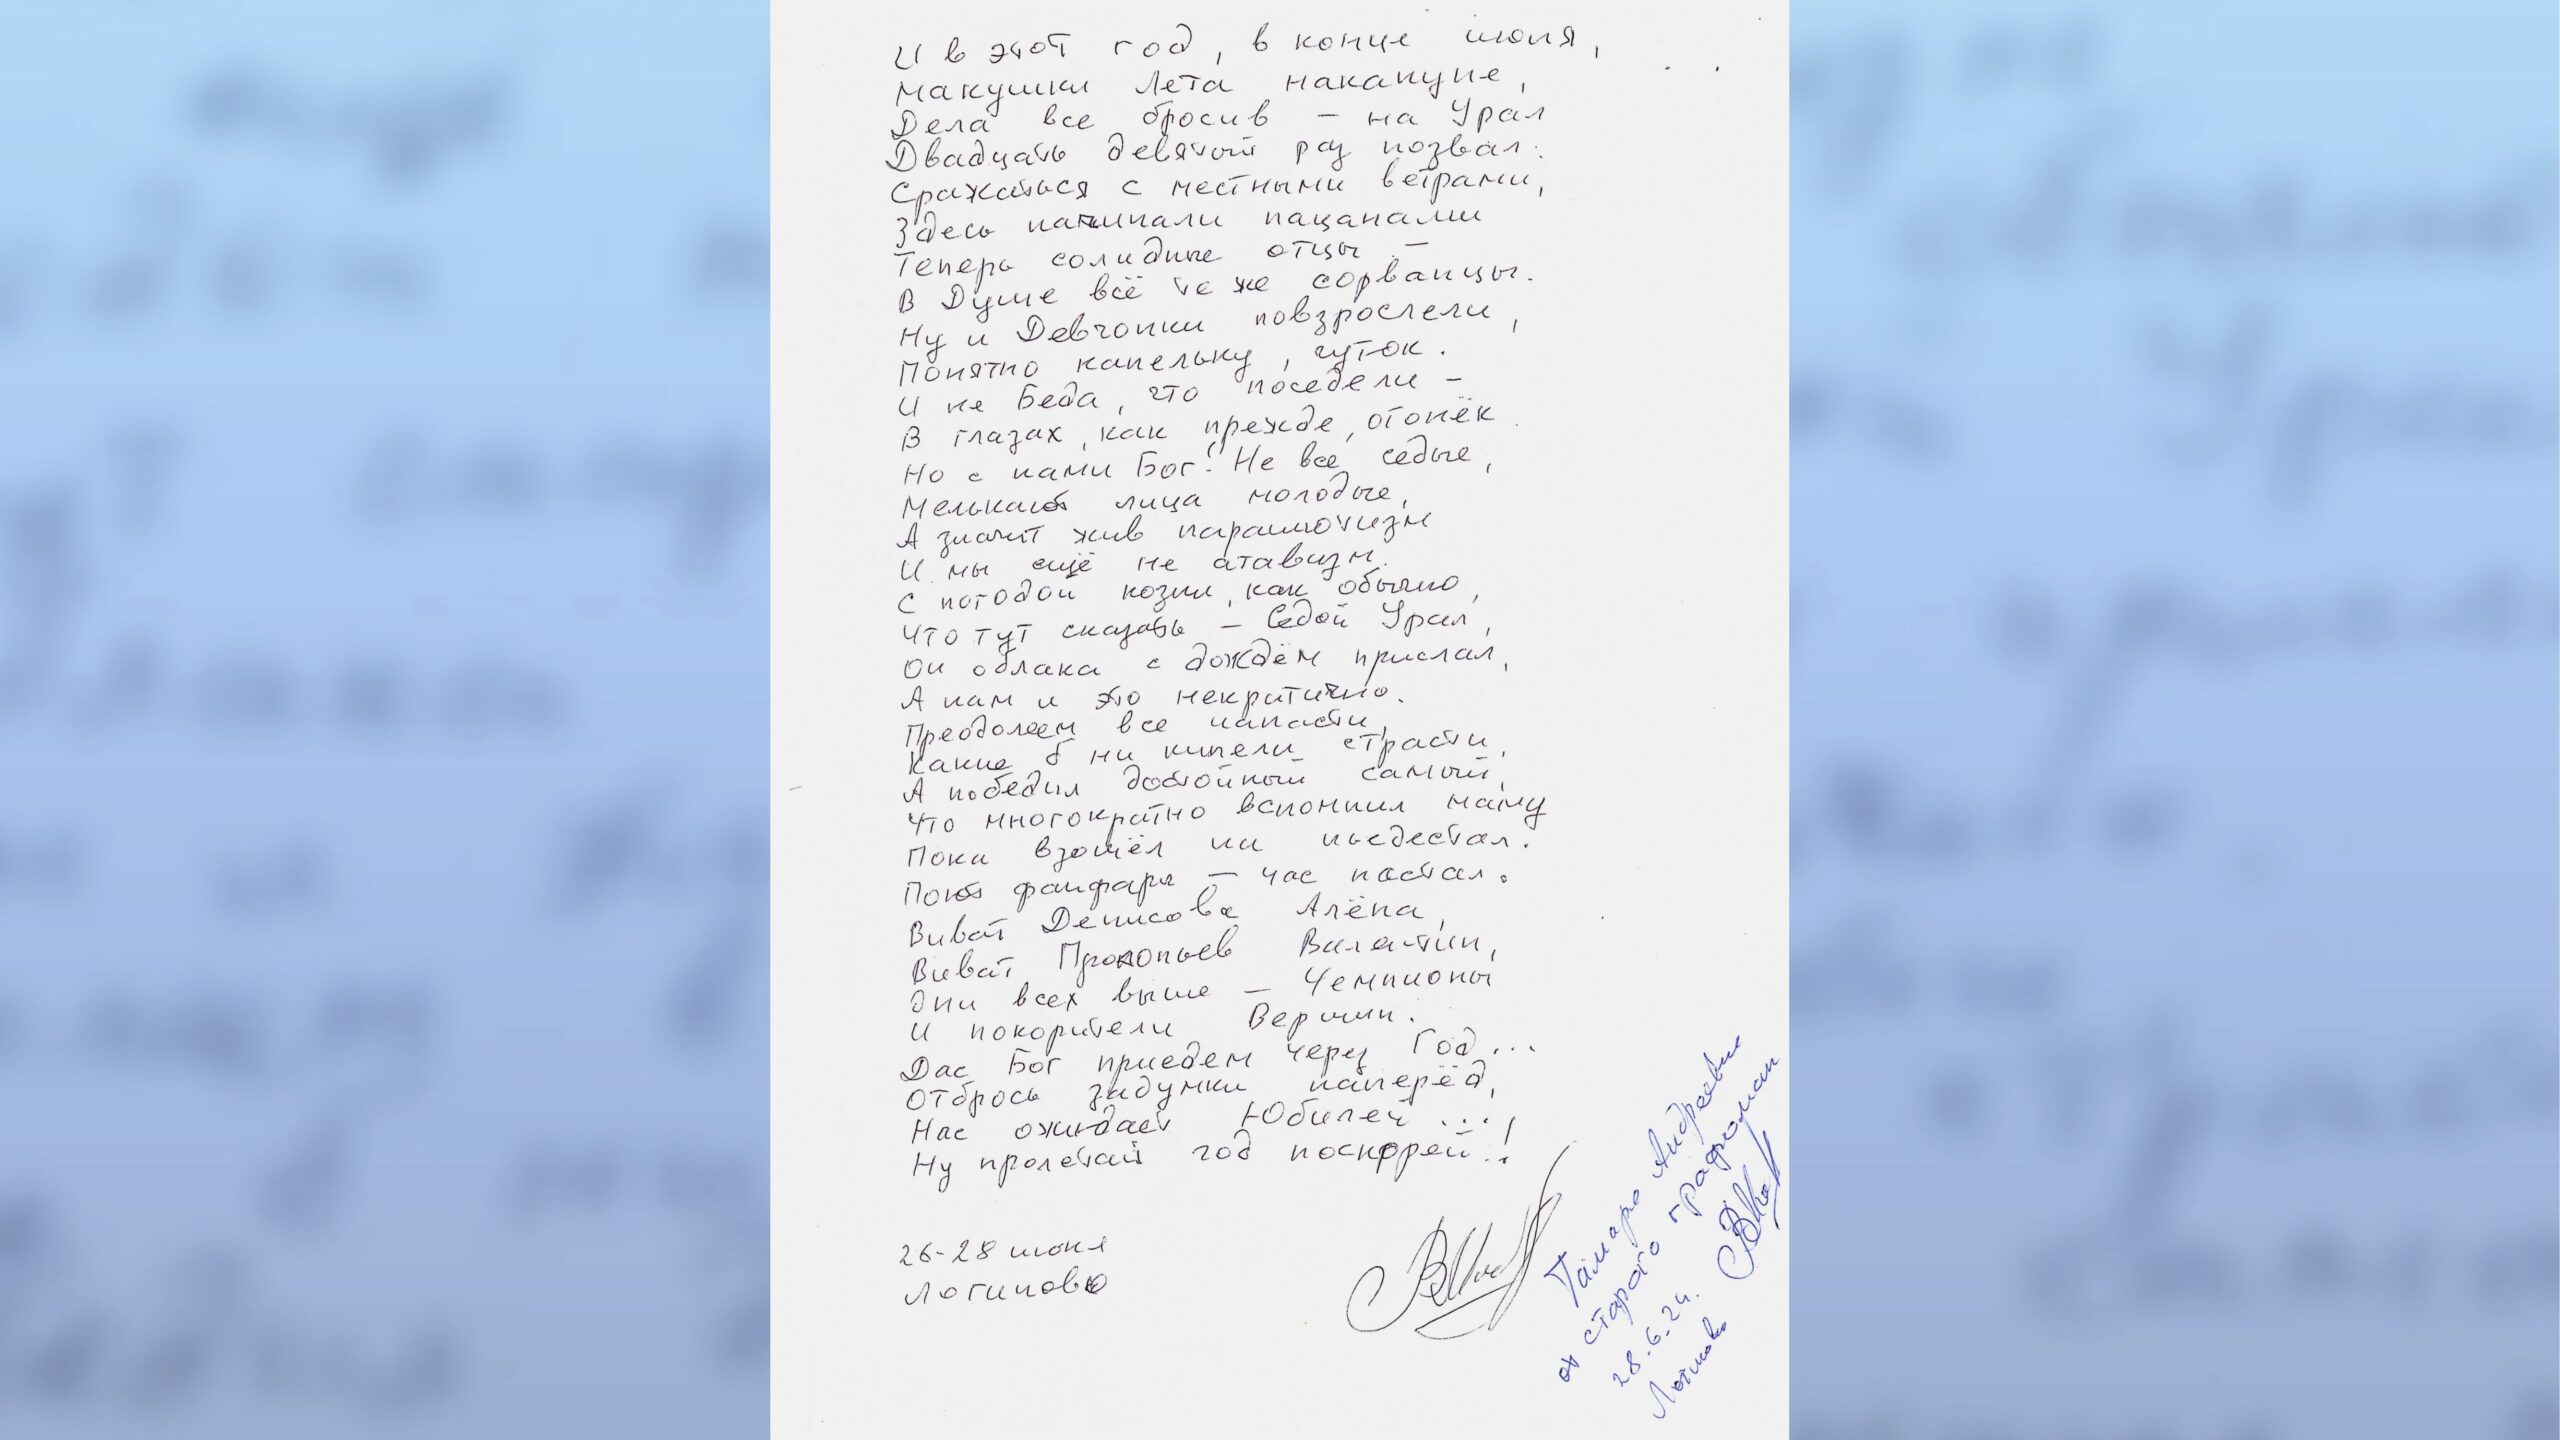 И в этот год, в конце июня,
Макушки Лета накануне,
Дела все бросив – на Урал
Двадцать девятый раз позвал.
Сражаться с местными ветрами,
Здесь начинали пацанами
Теперь солидные отцы –
В Душе всё те же сорванцы.
Ну и Девчонки повзрослели,
Понятно капельку, чуток.
И не Беда, что поседели –
В глазах, как прежде, огонёк.
Но с нами Бог! Не все седые,
Мелькают лица молодые,
А значит жив парашютизм
И мы ещё не атавизм.
С погодой козни, как обычно,
Что тут сказать – Седой Урал,
Он облака с дождём прислал,
А нам и это некритично.
Преодолеем все напасти,
Какие б ни кипели страсти,
А победил достойный самый,
Что многократно вспомнил маму
Пока взошёл на пьедестал.
Поют фанфары – час настал.
Виват Денисова Алёна,
Виват Прокопьев Валентин,
Они всех выше – Чемпионы
И покорители Вершин.
Дас Бог приедем через Год...
Отбрось задумки наперёд,
Нас ожидает Юбилей ...!
Ну пролетай год поскорей!
26-28 июня
Логиново
Тамаре Андреевне
от старого графоман
28.6.24.
Логиново